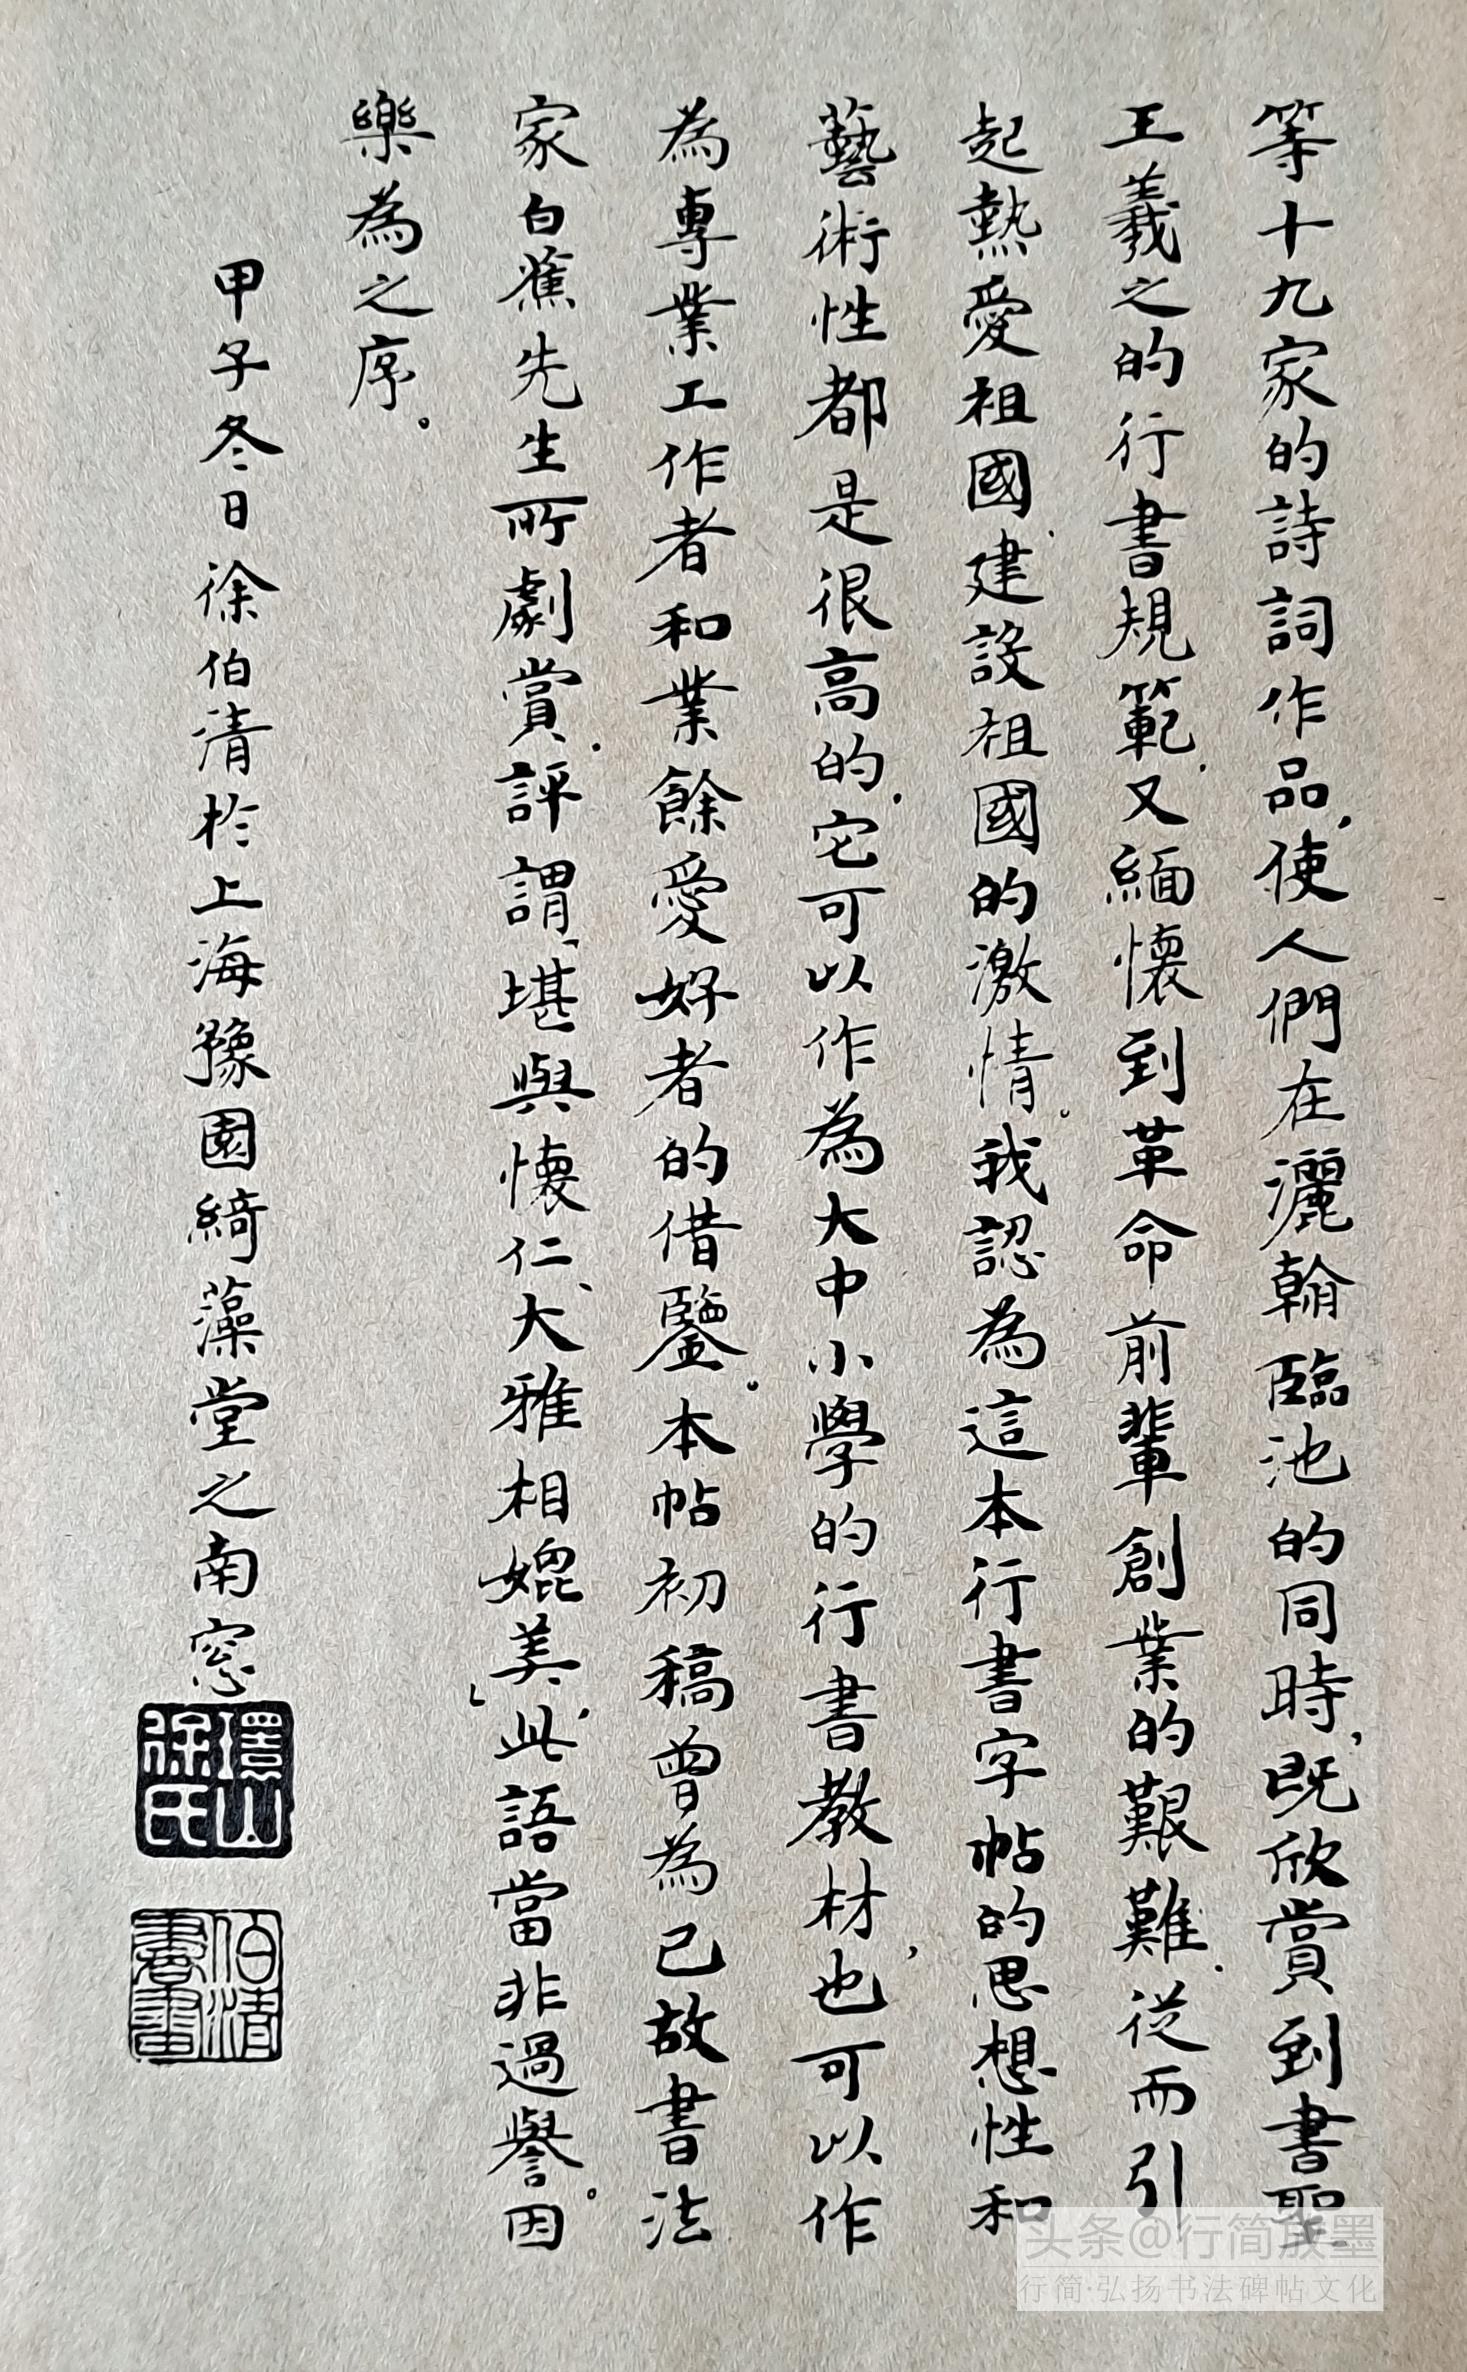 等十九家的詩詞作品，使人們在灑翰臨池的同時，既欣賞到書聖
王羲之的行書規範，又緬懷到革命前輩創業的艱難，從而引
起熱愛祖國、建設祖國的激情。我認為這本行書字帖的思想性和
藝術性都是很高的，它可以作為大中小學的行書教材，也可以作
為專業工作者和業餘愛好者的借鑒。本帖初稿曾為已故書法
家白蕉先生所劇賞，評謂「堪與懷仁、大雅相媲美」，此語當非過譽。因
樂為之序。
甲子冬日徐伯清於上海豫園綺藻堂之南窓
環山徐氏
伯清書畫
头条@行简放墨
行简·弘扬书法碑帖文化